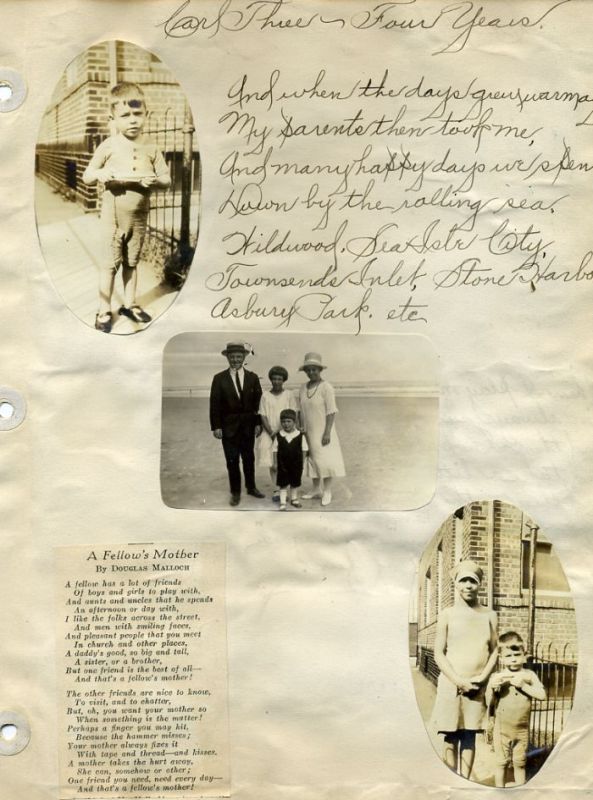 Carl Three - Four Years.
And when the days grew warm
My parents then took me,
And many happy days we spen
Down by the rolling sea.
Wildwood. Sea Isle City,
Townsends Inlet, Stone Harbo
Asbury Park. etc
A Fellow's Mother
By Douglas Malloch
A fellow has a lot of friends
Of boys and girls to play with,
And aunts and uncles that he spends
An afternoon or day with,
I like the folks across the street,
And men with smiling faces,
And pleasant people that you meet
In church and other places,
A daddy's good, so big and tall,
A sister, or a brother,
But one friend is the best of all—
And that's a fellow's mother!
The other friends are nice to know,
To visit, and to chatter,
But, oh, you want your mother so
When something is the matter!
Perhaps a finger you may hit,
Because the hammer misses;
Your mother always fixes it
With tape and thread—and kisses.
A mother takes the hurt away,
She can, somehow or other;
One friend you need, need every day—
And that's a fellow's mother!